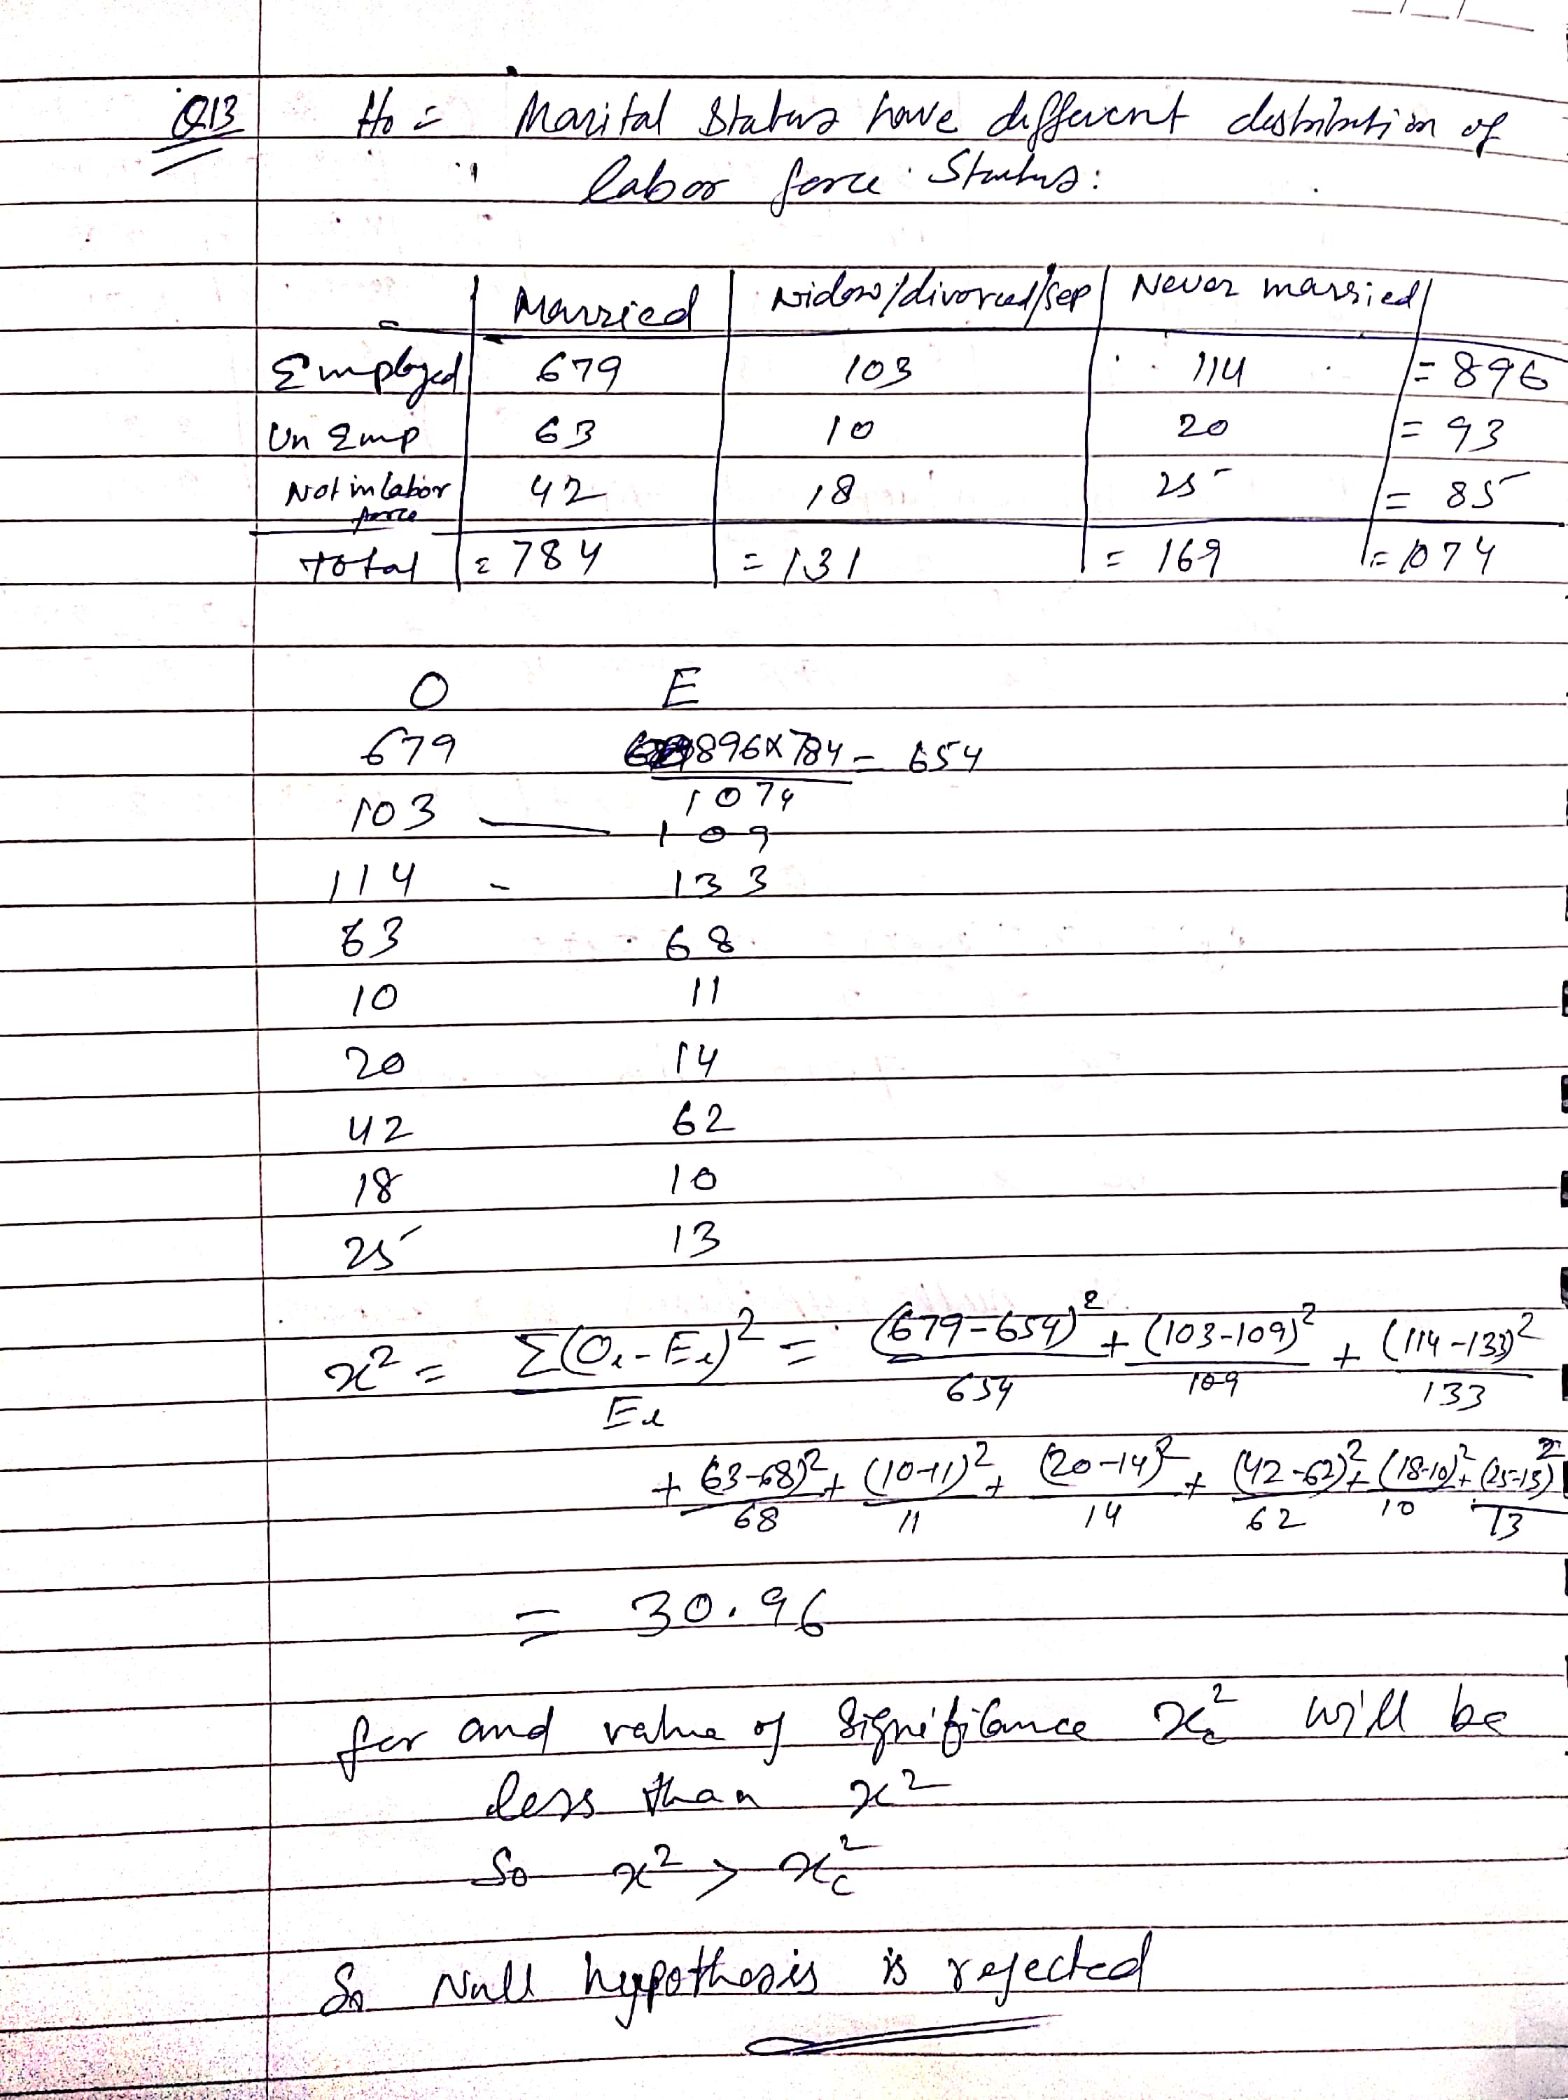 Q13 H₀ = Marital Status have different distribution of
labor force Status:
Married | widow/divorced/sep | Never married
Employed | 679 | 103 | 114 | = 896
Un Emp | 63 | 10 | 20 | = 93
Not in labor force | 42 | 18 | 25 | = 85
total | = 784 | = 131 | = 169 | = 1074
O E
679 896×784/1074 = 654
103 — 109
114 - 133
63 68
10 11
20 14
42 62
18 10
25 13
x² = Σ(Oi-Ei)²/Ei = (679-654)²/654 + (103-109)²/109 + (114-133)²/133
+ (63-68)²/68 + (10-11)²/11 + (20-14)²/14 + (42-62)²/62 + (18-10)²/10 + (25-13)²/13
= 30.96
for and value of Significance x²c will be
less than x²
So x² > x²c
So Null hypothesis is rejected